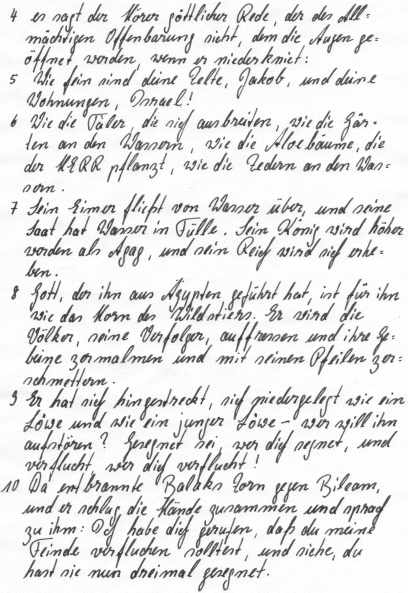 4 es sagt der Hörer göttlicher Rede, der des All-
mächtigen Offenbarung sieht, dem die Augen ge-
öffnet werden, wenn er niederkniet:
5 Wie fein sind deine Zelte, Jakob, und deine
Wohnungen, Israel!
6 Wie die Täler, die sich ausbreiten, wie die Gär-
ten an den Wassern, wie die Aloebäume, die
der HERR pflanzt, wie die Zedern an den Was-
sern.
7 Sein Eimer fließt von Wasser über, und seine
Saat hat Wasser in Fülle. Sein König wird höher
werden als Agag, und sein Reich wird sich erhe-
ben.
8 Gott, der ihn aus Ägypten geführt hat, ist für ihn
wie das Horn des Wildstiers. Er wird die
Völker, seine Verfolger, auffressen und ihre Ge-
beine zermalmen und mit seinen Pfeilen zer-
schmettern.
9 Er hat sich hingestreckt, sich niedergelegt wie ein
Löwe und wie ein junger Löwe – wer will ihn
aufstören? Gesegnet sei, der dich segnet, und
verflucht, wer dich verflucht!
10 Da entbrannte Balaks Zorn gegen Bileam,
und er schlug die Hände zusammen und sprach
zu ihm: Ich habe dich gerufen, daß du meine
Feinde verfluchen solltest, und siehe, du
hast sie nun dreimal gesegnet.